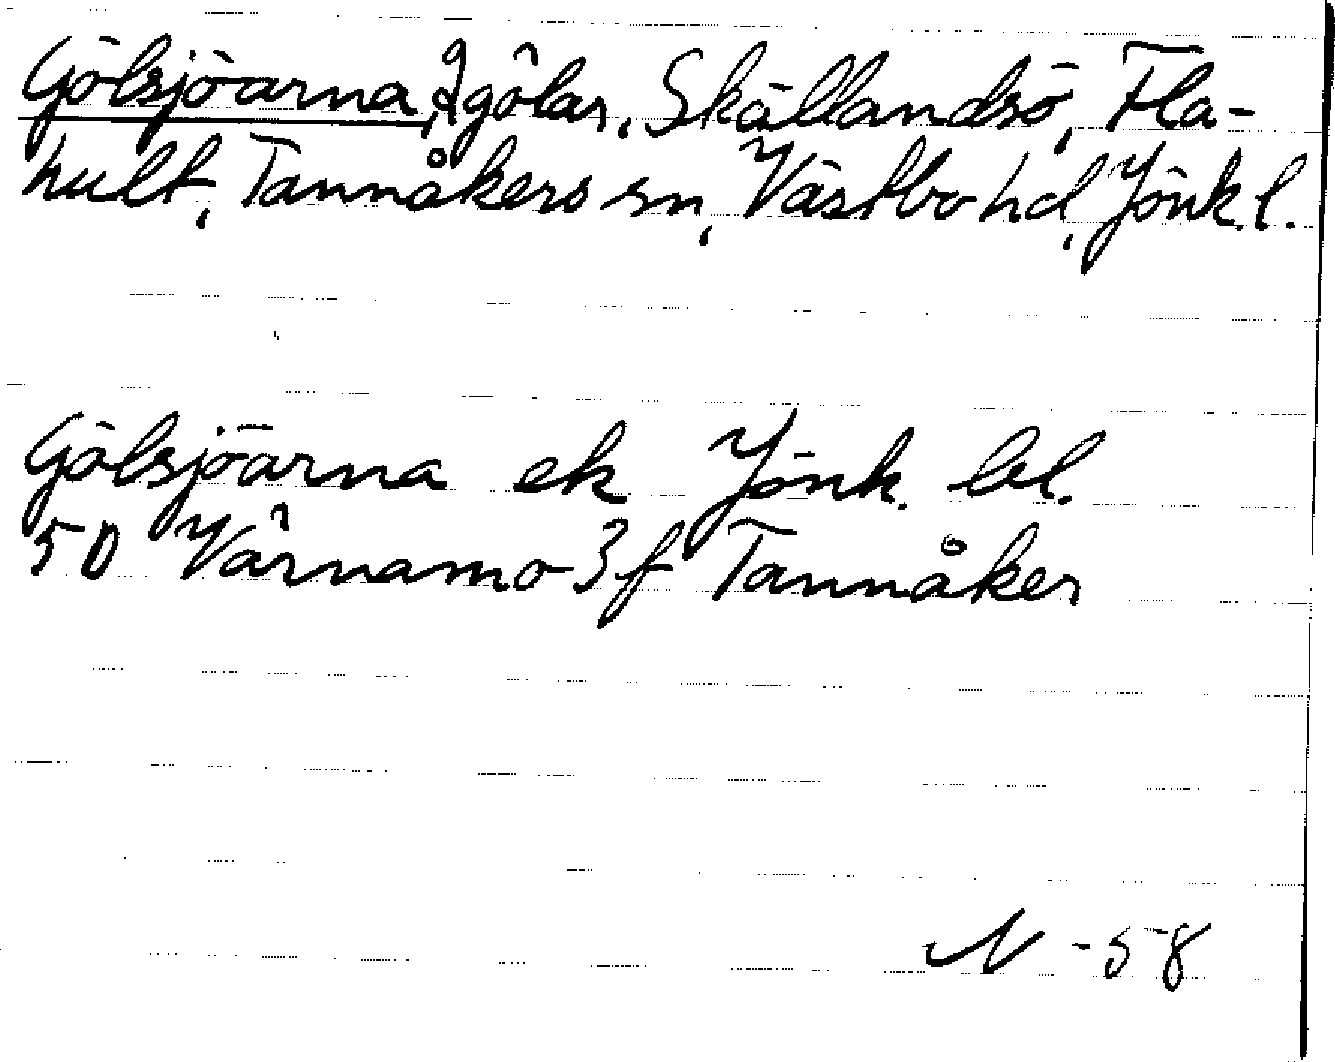 Gölsjöarna, 2 gölar, Skällandsö, Fla-
hult, Tannåkers sn, Västbo hd, Jönk. l.
Gölsjöarna ek Jönk. bl.
50 Värnamo 3f Tannåker
N -58